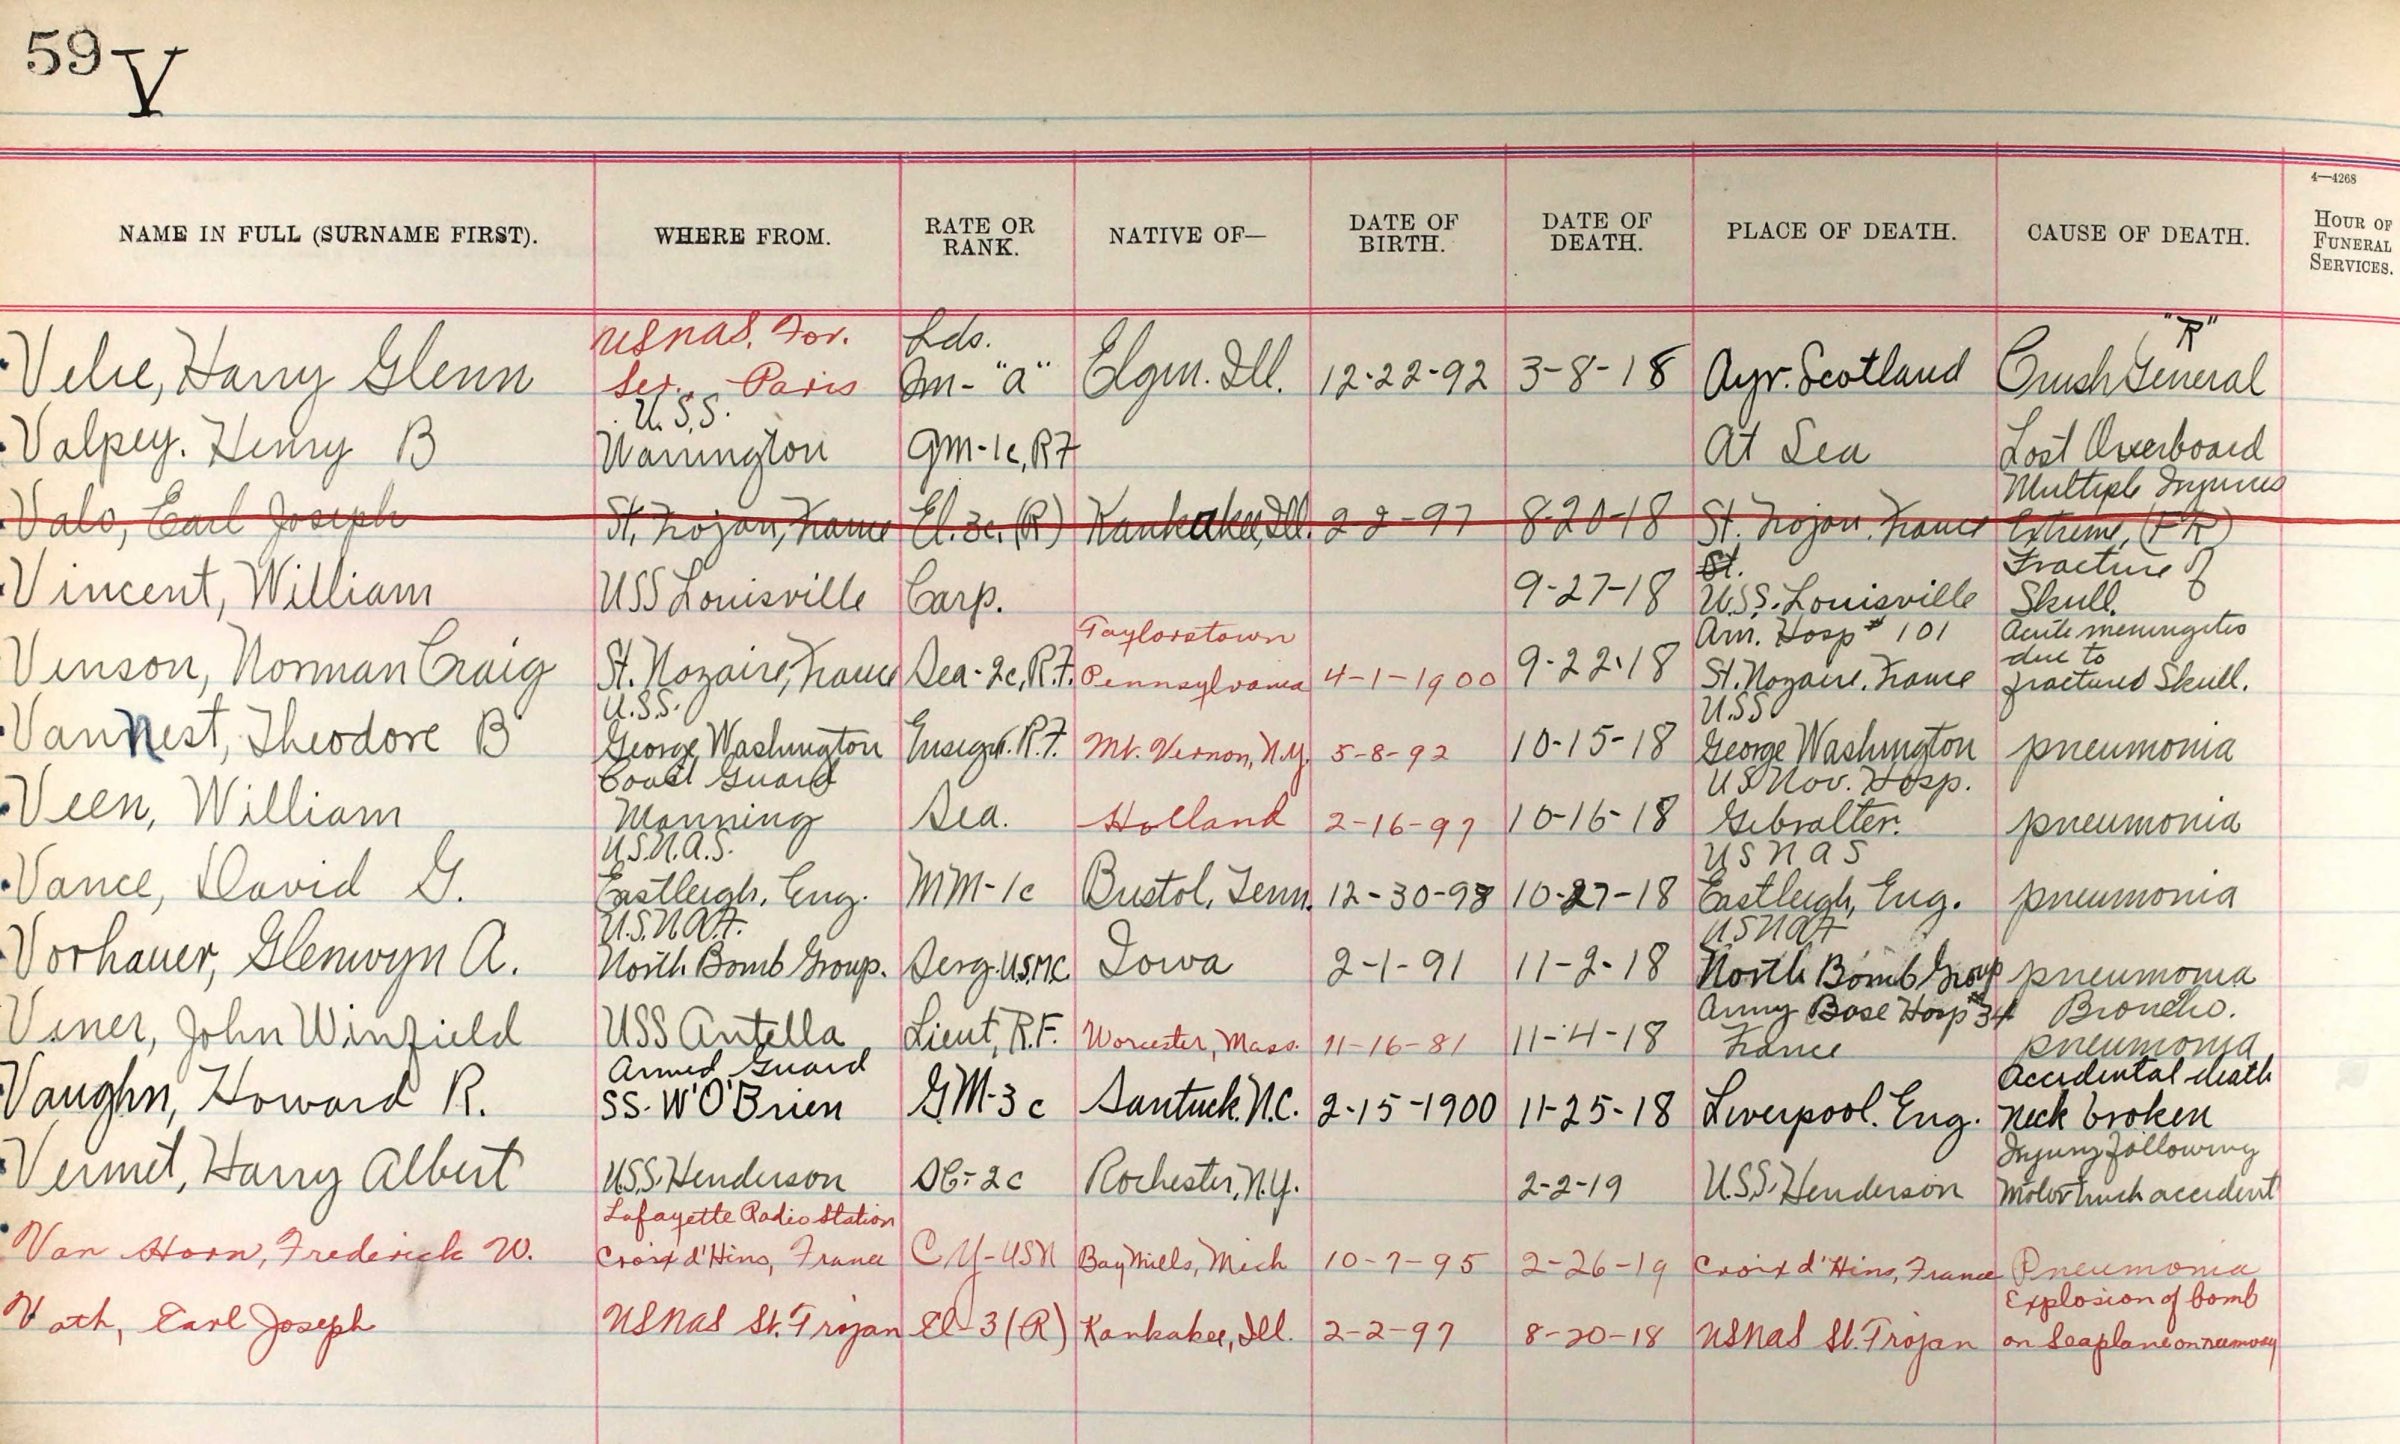 59 V
4—4268
NAME IN FULL (SURNAME FIRST). WHERE FROM. RATE OR RANK. NATIVE OF— DATE OF BIRTH. DATE OF DEATH. PLACE OF DEATH. CAUSE OF DEATH. HOUR OF FUNERAL SERVICES.
USNAS. For. Lds. "R"
Velie, Harry Glenn Ser., Paris Qm-"a" Elgin. Ill. 12-22-92 3-8-18 Ayr. Scotland Crush General
U.S.S.
Valpey. Henry B Warrington GM-1c, RF At Sea Lost Overboard
Multiple Injuries
Valo, Earl Joseph St. Trojan, France El. 3c. (R) Kankakee, Ill. 2-2-97 8-20-18 St. Trojan, France Extreme,
St. Fracture of
Vincent, William USS Louisville Carp. 9-27-18 U.S.S. Louisville Skull.
Taylorstown Am. Hosp # 101 Acute meningitis due to
Vinson, Norman Craig St. Nazaire, France Sea-2c, R.F. Pennsylvania 4-1-1900 9-22-18 St. Nazaire, France fractured Skull.
U.S.S. USS
VanNest, Theodore B George Washington Ensign. R.F. Mt. Vernon, N.Y. 5-8-92 10-15-18 George Washington pneumonia
Coast Guard US Nav. Hosp.
Veen, William Manning Sea. Holland 2-16-97 10-16-18 Gibralter. pneumonia
U.S.N.A.S. USNAS
Vance, David G. Eastleigh, Eng. MM-1c Bristol, Tenn. 12-30-98 10-27-18 Eastleigh, Eng. pneumonia
U.S.N.A.F. USNAF
Vorhauer, Glenwyn A. North Bomb Group. Serg. U.S.M.C. Iowa 2-1-91 11-2-18 North Bomb Group pneumonia
Army Base Hosp #34 Broncho.
Viner, John Winfield USS Antella Lieut, R.F. Worcester, Mass. 11-16-81 11-4-18 France pneumonia
Armed Guard Accidental death
Vaughn, Howard R. SS. W'O'Brien GM-3c Santuck. N.C. 2-15-1900 11-25-18 Liverpool. Eng. neck broken
Injury following
Vermet, Harry Albert U.S.S. Henderson SC-2c Rochester, N.Y. 2-2-19 U.S.S. Henderson motor truck accident
Lafayette Radio Station
Van Horn, Frederick W. Croix d'Hins, France CY-USN Bay Mills, Mich 10-7-95 2-26-19 Croix d'Hins, France Pneumonia
Explosion of bomb
Vath, Earl Joseph USNAS St. Trojan El-3 (R) Kankakee, Ill. 2-2-97 8-20-18 USNAS St. Trojan on Seaplane on runway